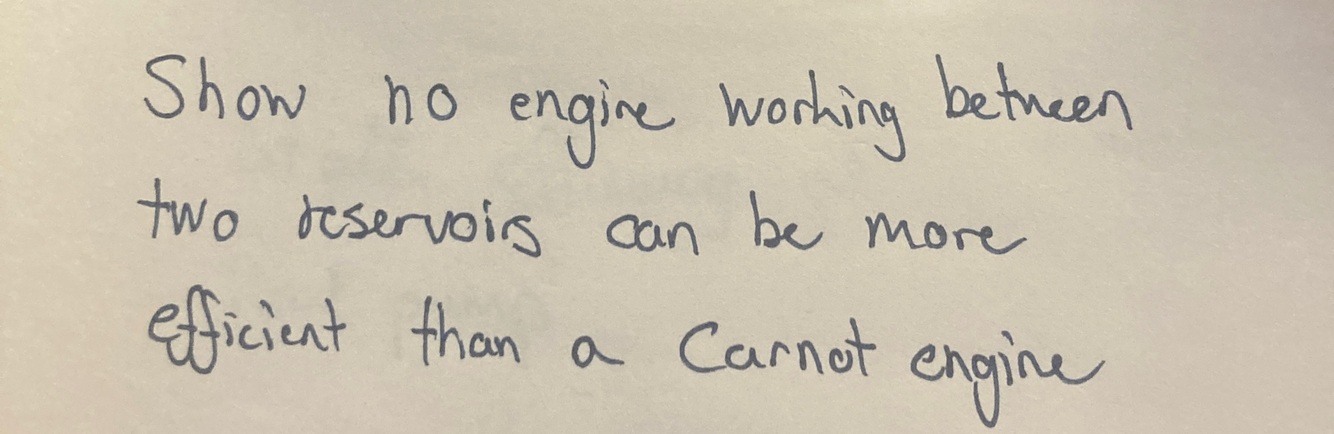 Show no engine working between
two reservoirs can be more
efficient than a Carnot engine